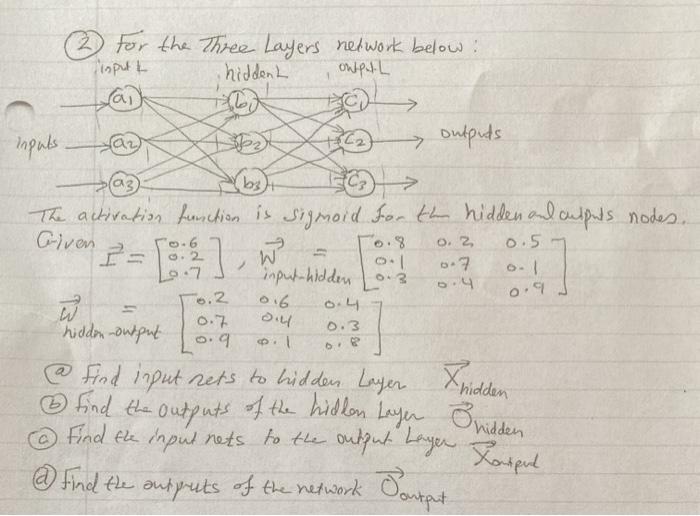 ② For the Three Layers network below:
input L hidden L output L
a1 b1 c1
inputs a2 b2 c2 outputs
a3 b3 c3
The activation function is sigmoid for the hidden and outputs nodes.
Given I = [0.6 0.2 0.7], W input-hidden = [0.8 0.2 0.5
0.1 0.7 0.1
0.3 0.4 0.9]
W hidden-output = [0.2 0.6 0.4
0.7 0.4 0.3
0.9 0.1 0.8]
ⓐ find input nets to hidden Layer X hidden
ⓑ find the outputs of the hidden Layer O hidden
ⓒ find the input nets to the output Layer X output
ⓓ find the outputs of the network O output